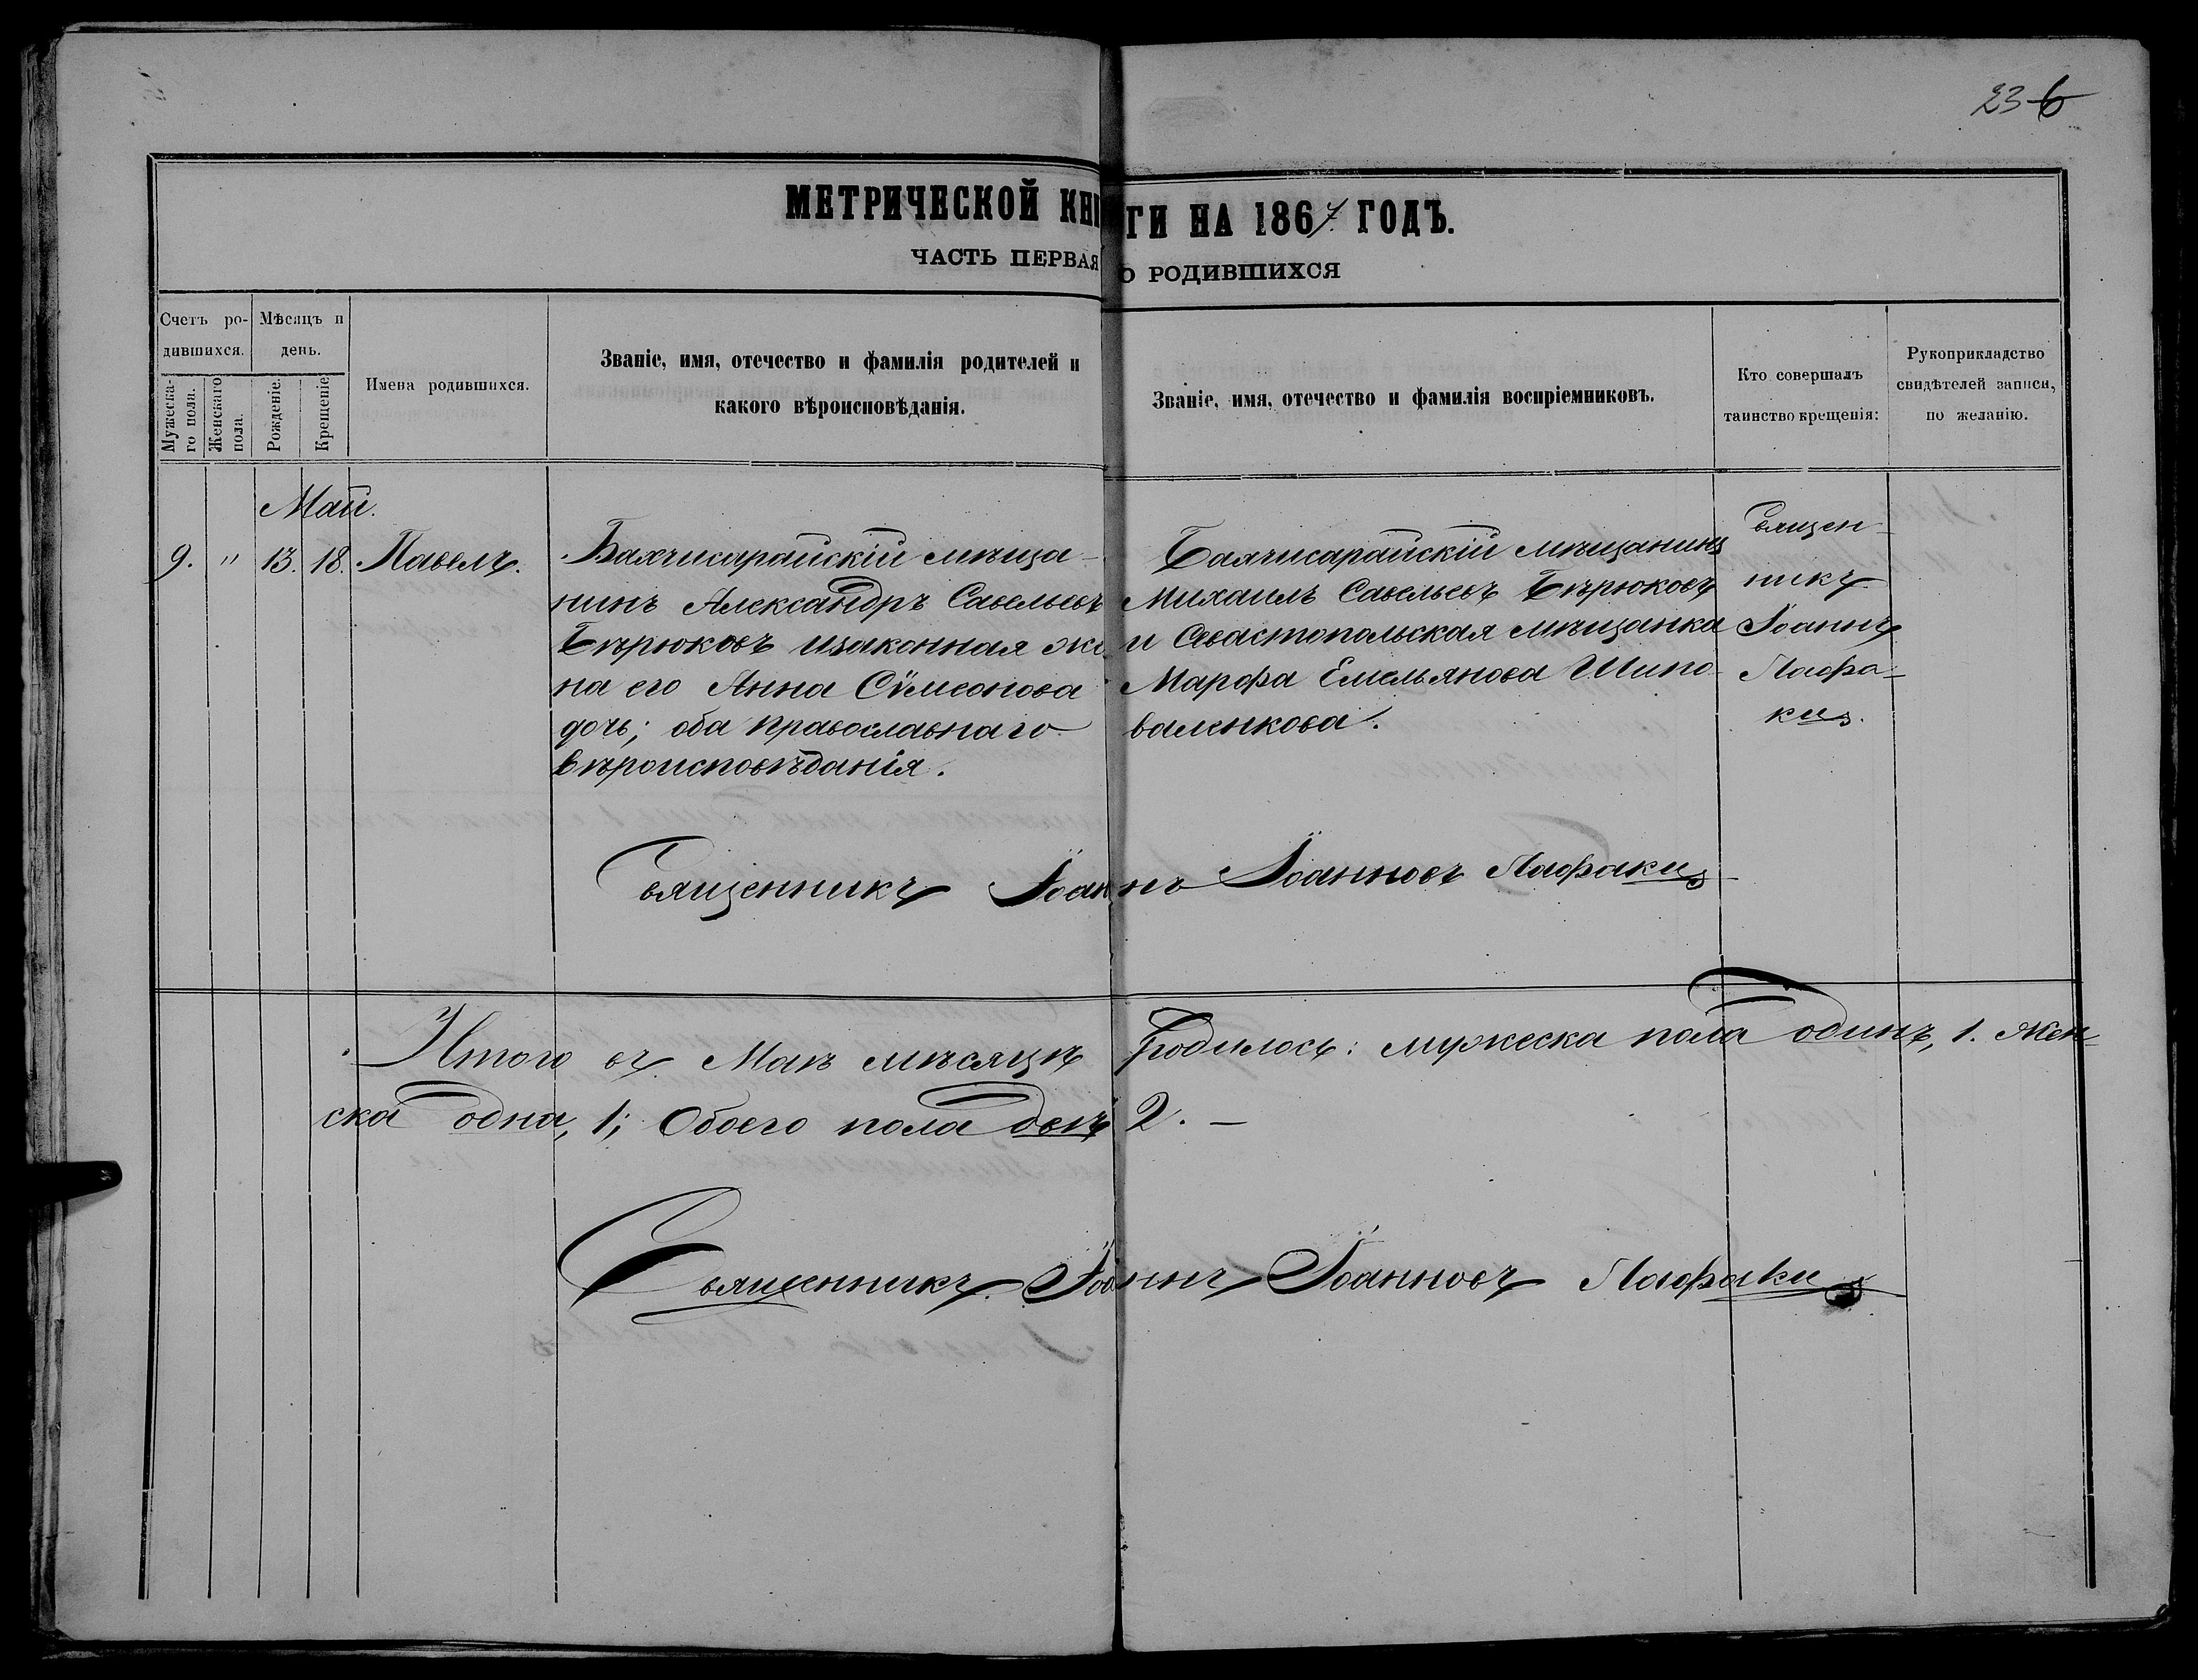 236
МЕТРИЧЕСКОЙ КНИГИ НА 1867 ГОДЪ.
ЧАСТЬ ПЕРВАЯ О РОДИВШИХСЯ
Счетъ ро-
дившихся.
Мужеска-
го пола.
Женскаго
пола.
Мѣсяцъ и
день.
Рожденіе.
Крещеніе.
Имена родившихся.
Званіе, имя, отечество и фамилія родителей и
какого вѣроисповѣданія.
Званіе, имя, отечество и фамилія воспріемниковъ.
Кто совершалъ
таинство крещенія:
Рукоприкладство
свидѣтелей записи,
по желанію.
Май.
9. " 13. 18. Павелъ.
Бахчисарайскій мѣща-
нинъ Александръ Савельевъ
Бѣрюковъ и законная же
на его Анна Сѵмеонова
дочь; оба православнаго
вѣроисповѣданія.
Бахчисарайскій мѣщанинъ
Михаилъ Савельевъ Бѣрюковъ
и Севастопольская мѣщанка
Марфа Емельянова Шипо-
валенкова.
Священ-
никъ
Іоаннъ
Лафа-
ки.
Священникъ Іоаннъ Іоанновъ Лафаки
Итого въ Маѣ мѣсяцѣ родилось: мужеска пола одинъ, 1. Жен-
ска одна, 1; Обоего пола двѣ 2. —
Священникъ Іоаннъ Іоанновъ Лафаки